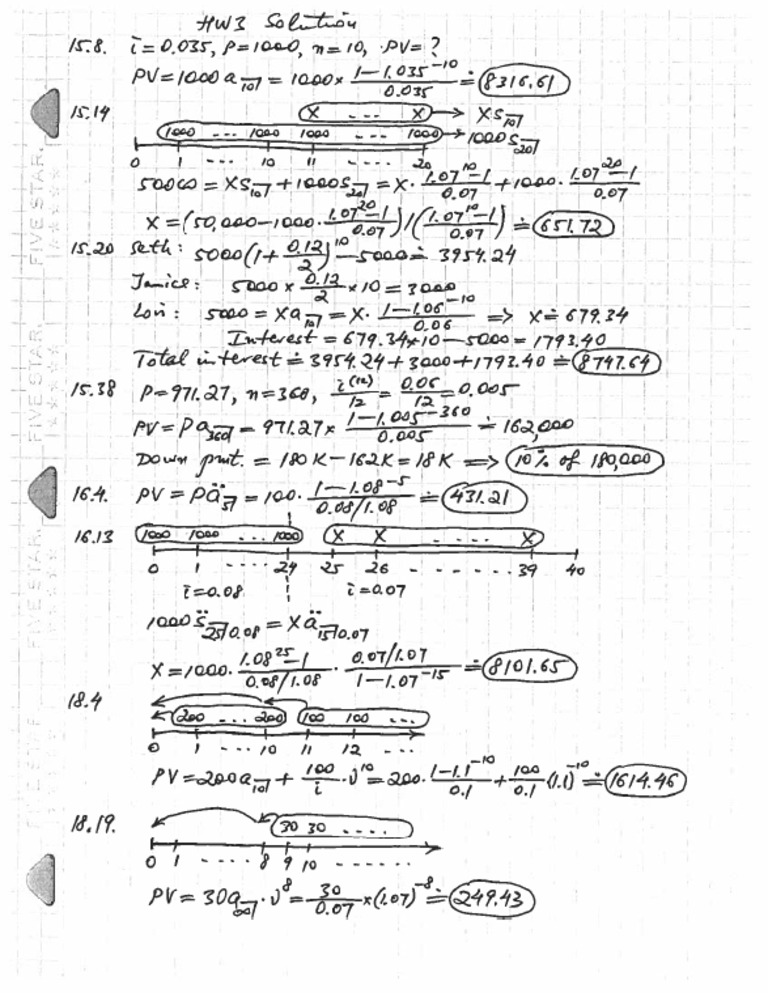 HW3 Solution
15.8. i = 0.035, P = 1000, n = 10, PV = ?
PV = 1000 a_10⌉ = 1000 × (1 − 1.035^−10)/0.035 ≐ 8316.61
15.14 X --- X → X s_10⌉
1000 ... 1000 1000 --- 1000 → 1000 s_20⌉
0 1 ---- 10 11 ---- 20
50000 = X s_10⌉ + 1000 s_20⌉ = X · (1.07^10 − 1)/0.07 + 1000 · (1.07^20 − 1)/0.07
X = (50,000 − 1000 · (1.07^20 − 1)/0.07) / ((1.07^10 − 1)/0.07) ≐ 651.72
15.20 Seth: 5000(1 + 0.12/2)^10 − 5000 ≐ 3954.24
Janice: 5000 × 0.12/2 × 10 = 3000
Lori: 5000 = X a_10⌉ = X · (1 − 1.06^−10)/0.06 ⇒ X ≐ 679.34
Interest = 679.34×10 − 5000 = 1793.40
Total interest ≐ 3954.24 + 3000 + 1793.40 ≐ 8747.64
15.38 P = 971.27, n = 360, i^(12)/12 = 0.06/12 = 0.005
PV = P a_360⌉ = 971.27 × (1 − 1.005^−360)/0.005 ≐ 162,000
Down pmt. = 180K − 162K = 18K ⇒ 10% of 180,000
16.4. PV = P ä_5⌉ = 100 · (1 − 1.08^−5)/(0.08/1.08) ≐ 431.21
16.13 1000 1000 ... 1000 X X - ---- X
0 1 ---- 24 25 26 ------ 39 40
i = 0.08 i = 0.07
1000 s̈_25⌉0.08 = X ä_15⌉0.07
X = 1000 · (1.08^25 − 1)/(0.08/1.08) · (0.07/1.07)/(1 − 1.07^−15) ≐ 8101.65
18.4
200 ... 200 100 100 ...
0 1 --- 10 11 12 ---
PV = 200 a_10⌉ + 100/i · v^10 = 200 · (1 − 1.1^−10)/0.1 + 100/0.1 (1.1)^−10 ≐ 1614.46
18.19. 30 30 ....
0 1 ---- 8 9 10 ------
PV = 30 a_∞⌉ · v^8 = 30/0.07 × (1.07)^−8 ≐ 249.43
FIVE STAR.
FIVE STAR.
FIVE STAR.
FIVE STAR.